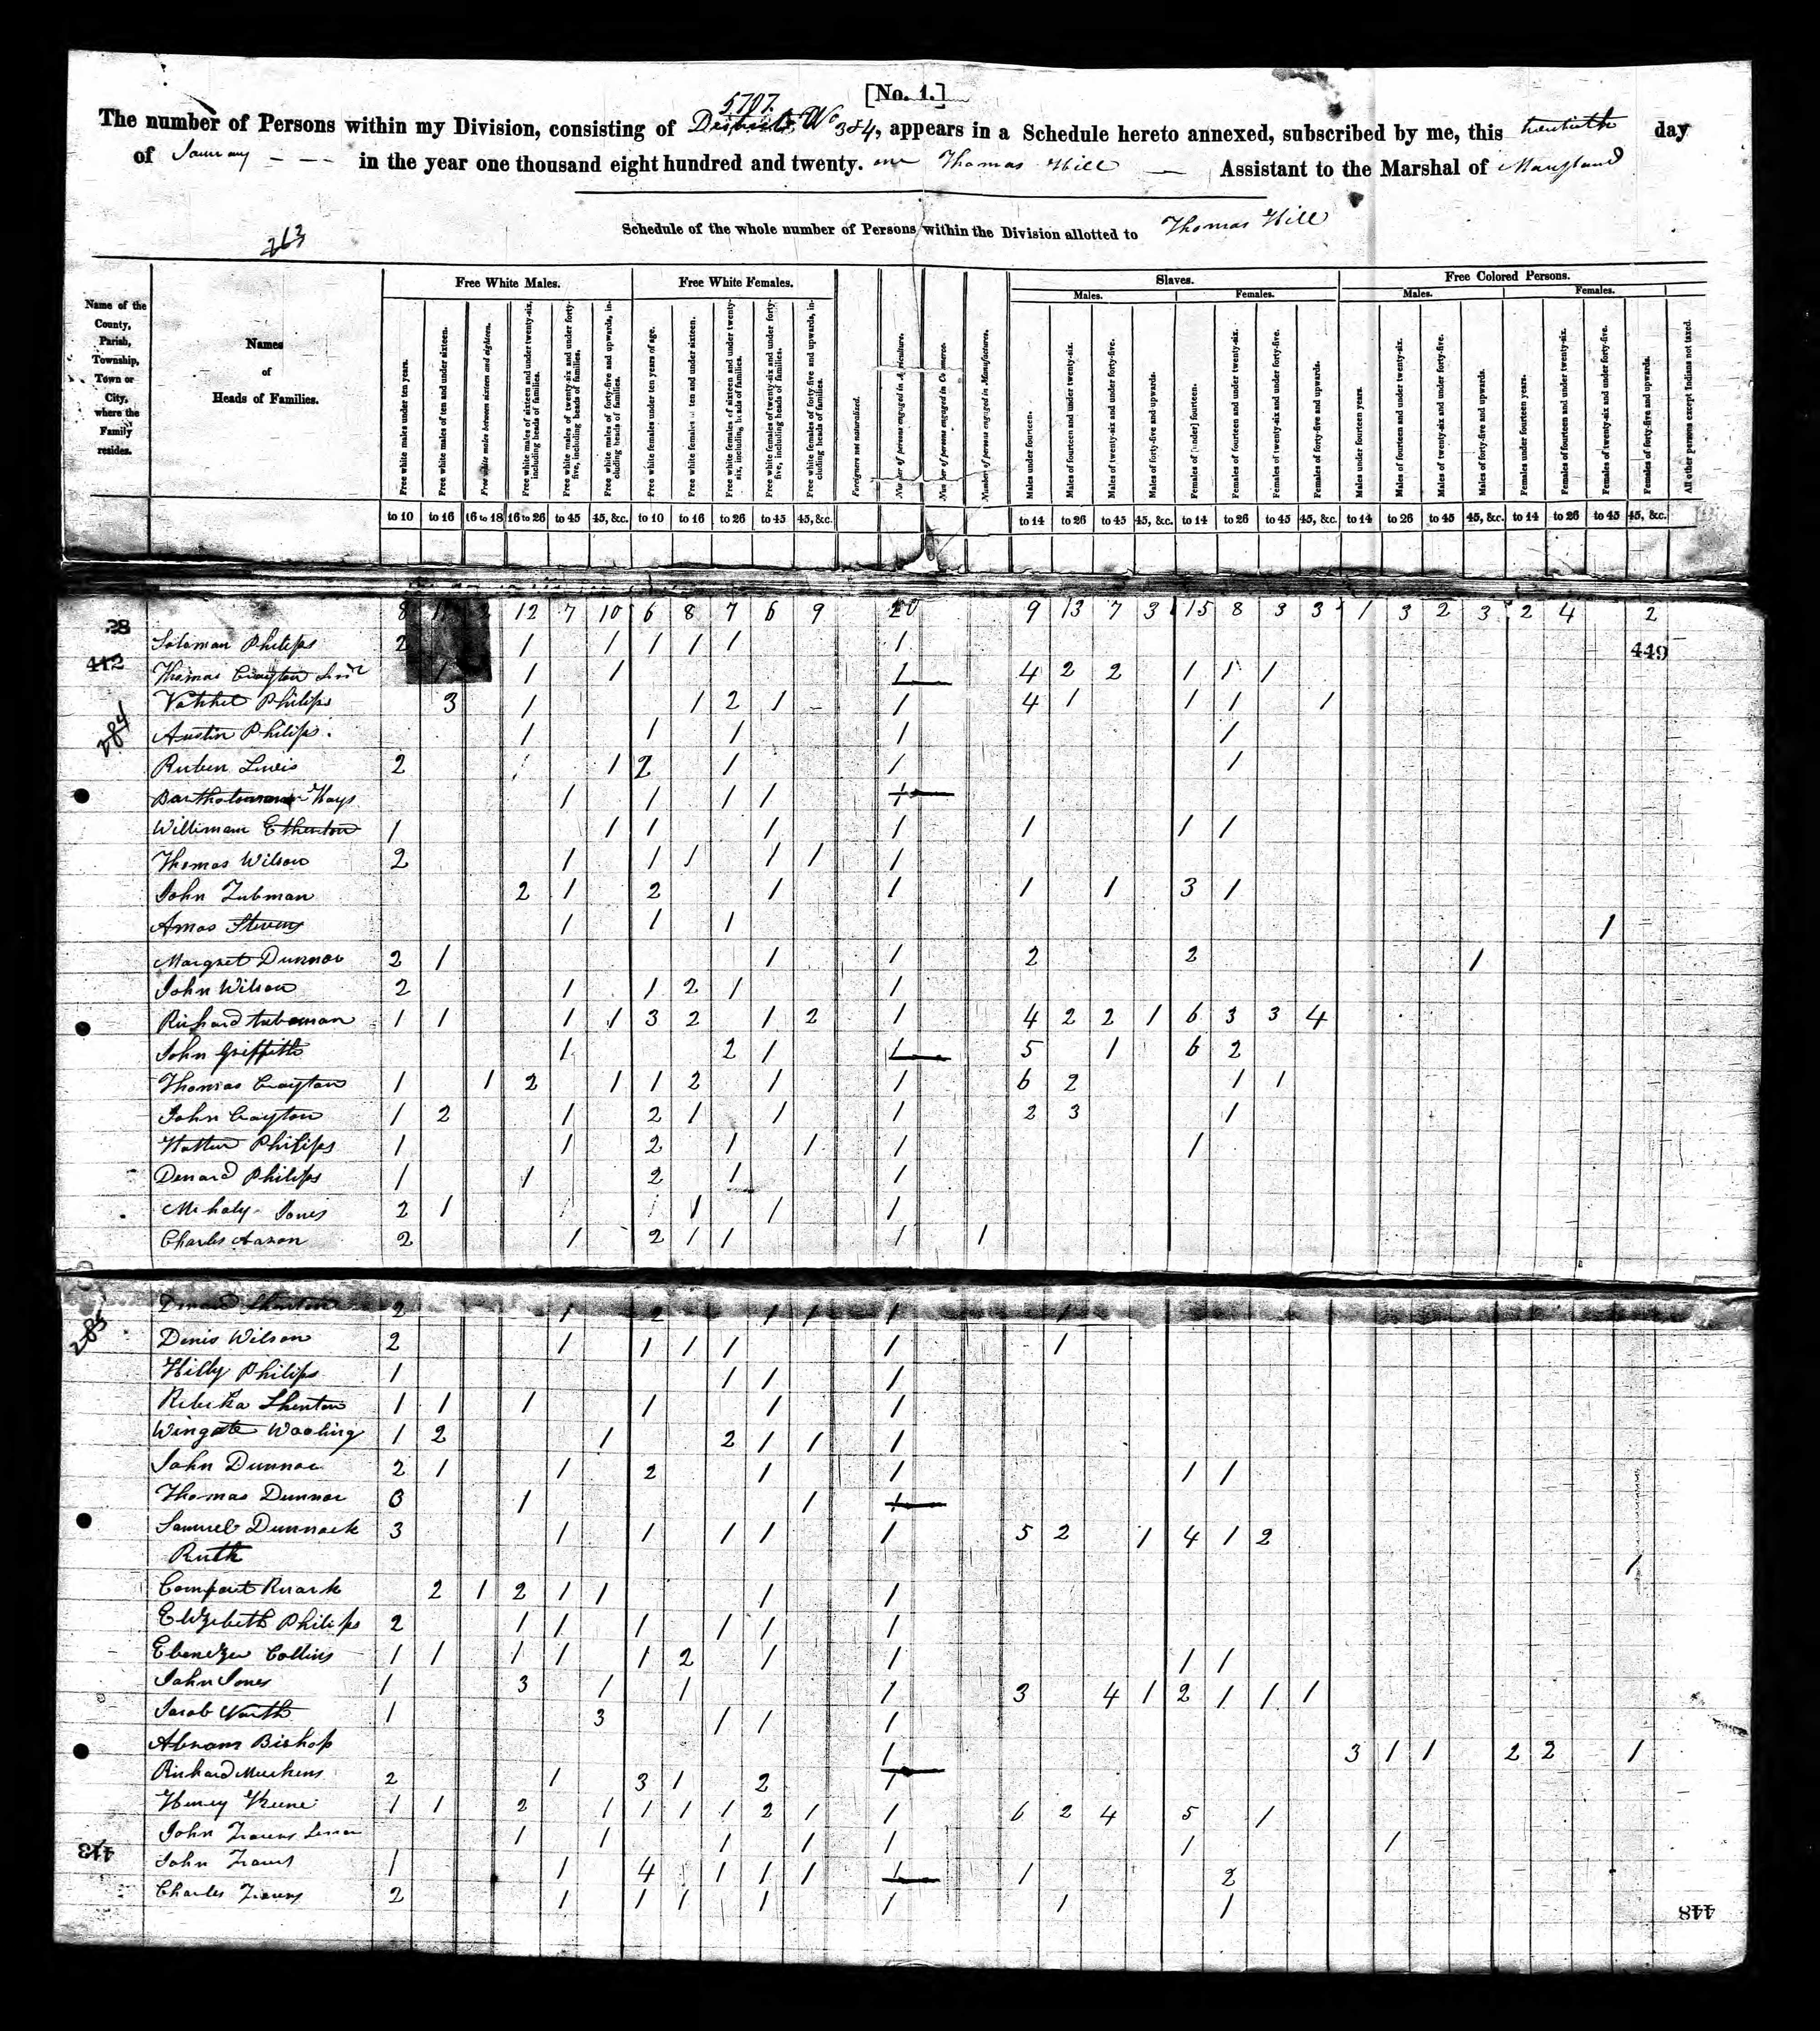 [No. 1.]
5707.
The number of Persons within my Division, consisting of Districts No 3 & 4, appears in a Schedule hereto annexed, subscribed by me, this twentieth day
of January - - - in the year one thousand eight hundred and twenty. one Thomas Hill — Assistant to the Marshal of Maryland
Schedule of the whole number of Persons within the Division allotted to Thomas Hill
263
Name of the County, Parish, Township, Town or City, where the Family resides.
Names of Heads of Families.
Free White Males.
Free white males under ten years.
Free white males of ten and under sixteen.
Free white males between sixteen and eighteen.
Free white males of sixteen and under twenty-six, including heads of families.
Free white males of twenty-six and under forty-five, including heads of families.
Free white males of forty-five and upwards, including heads of families.
Free White Females.
Free white females under ten years of age.
Free white females of ten and under sixteen.
Free white females of sixteen and under twenty-six, including heads of families.
Free white females of twenty-six and under forty-five, including heads of families.
Free white females of forty-five and upwards, including heads of families.
Foreigners not naturalized.
Number of persons engaged in Agriculture.
Number of persons engaged in Commerce.
Number of persons engaged in Manufactures.
Slaves.
Males.
Males under fourteen.
Males of fourteen and under twenty-six.
Males of twenty-six and under forty-five.
Males of forty-five and upwards.
Females.
Females of [under] fourteen.
Females of fourteen and under twenty-six.
Females of twenty-six and under forty-five.
Females of forty-five and upwards.
Free Colored Persons.
Males.
Males under fourteen years.
Males of fourteen and under twenty-six.
Males of twenty-six and under forty-five.
Males of forty-five and upwards.
Females.
Females under fourteen years.
Females of fourteen and under twenty-six.
Females of twenty-six and under forty-five.
Females of forty-five and upwards.
All other persons except Indians not taxed.
to 10 to 16 16 to 18 16 to 26 to 45 45, &c. to 10 to 16 to 26 to 45 45, &c. to 14 to 26 to 45 45, &c. to 14 to 26 to 45 45, &c. to 14 to 26 to 45 45, &c. to 14 to 26 to 45 45, &c.
28 8 12 7 10 6 8 7 6 9 20 9 13 7 3 15 8 3 3 1 3 2 3 2 4 2
Soloman Philips 2 1 1 1 1 1 1 449
412 Thomas Crayton 1 1 1 1 4 2 2 1 1 1
Vatchel Philips 3 1 1 2 1 1 4 1 1 1 1
284 Austin Philips 1 1 1 1 1
Ruben Lewis 2 1 1 2 1 1 1
Hays 1 1 1 1 1
Willimam Ethenton 1 1 1 1 1 1 1 1
Thomas Wilson 2 1 1 1 1 1 1
John Tubman 2 1 2 1 1 1 1 3 1
Amos Stevens 1 1 1 1
Margret Dunnoc 2 1 1 1 2 2 1
John Wilson 2 1 1 2 1 1
Richard tubman 1 1 1 1 3 2 1 2 1 4 2 2 1 6 3 3 4
John Griffith 1 2 1 1 5 1 6 2
Thomas Crayton 1 1 2 1 1 2 1 1 6 2 1 1
John Crayton 1 2 1 2 1 1 1 2 3 1
Philips 1 1 2 1 1 1 1
Denard Philips 1 1 2 1 1
Jones 2 1 1 1 1 1 1
Charles Aaron 2 1 2 1 1 1 1
285 2 1 2 1 1 1 1
Denis Wilson 2 1 1 1 1 1 1
Hilly Philips 1 1 1 1
Rebecka Shenton 1 1 1 1 1 1
Wingate Wooling 1 2 1 2 1 1 1
John Dunnoc 2 1 1 2 1 1 1 1
Thomas Dunnoc 0 1 1 1
Samuel Dunnock 3 1 1 1 1 1 5 2 1 4 1 2
Ruth 1
Comfort Ruark 2 1 2 1 1 1 1
Elizebeth Philips 2 1 1 1 1 1 1
Ebenezer Collins 1 1 1 1 1 2 1 1 1 1
John Jones 1 3 1 1 1 3 4 1 2 1 1 1
Jacob North 1 3 1 1 1
Abram Bishop 1 3 1 1 2 2 1
Richard Meekins 2 1 3 1 2 1
Henry Keene 1 1 2 1 1 1 1 2 1 1 6 2 4 5 1
413 John Travers 1 1 1 1 1 1 1
John Travers 1 1 4 1 1 1 1 1 2
Charles Travers 2 1 1 1 1 1 1 1
448